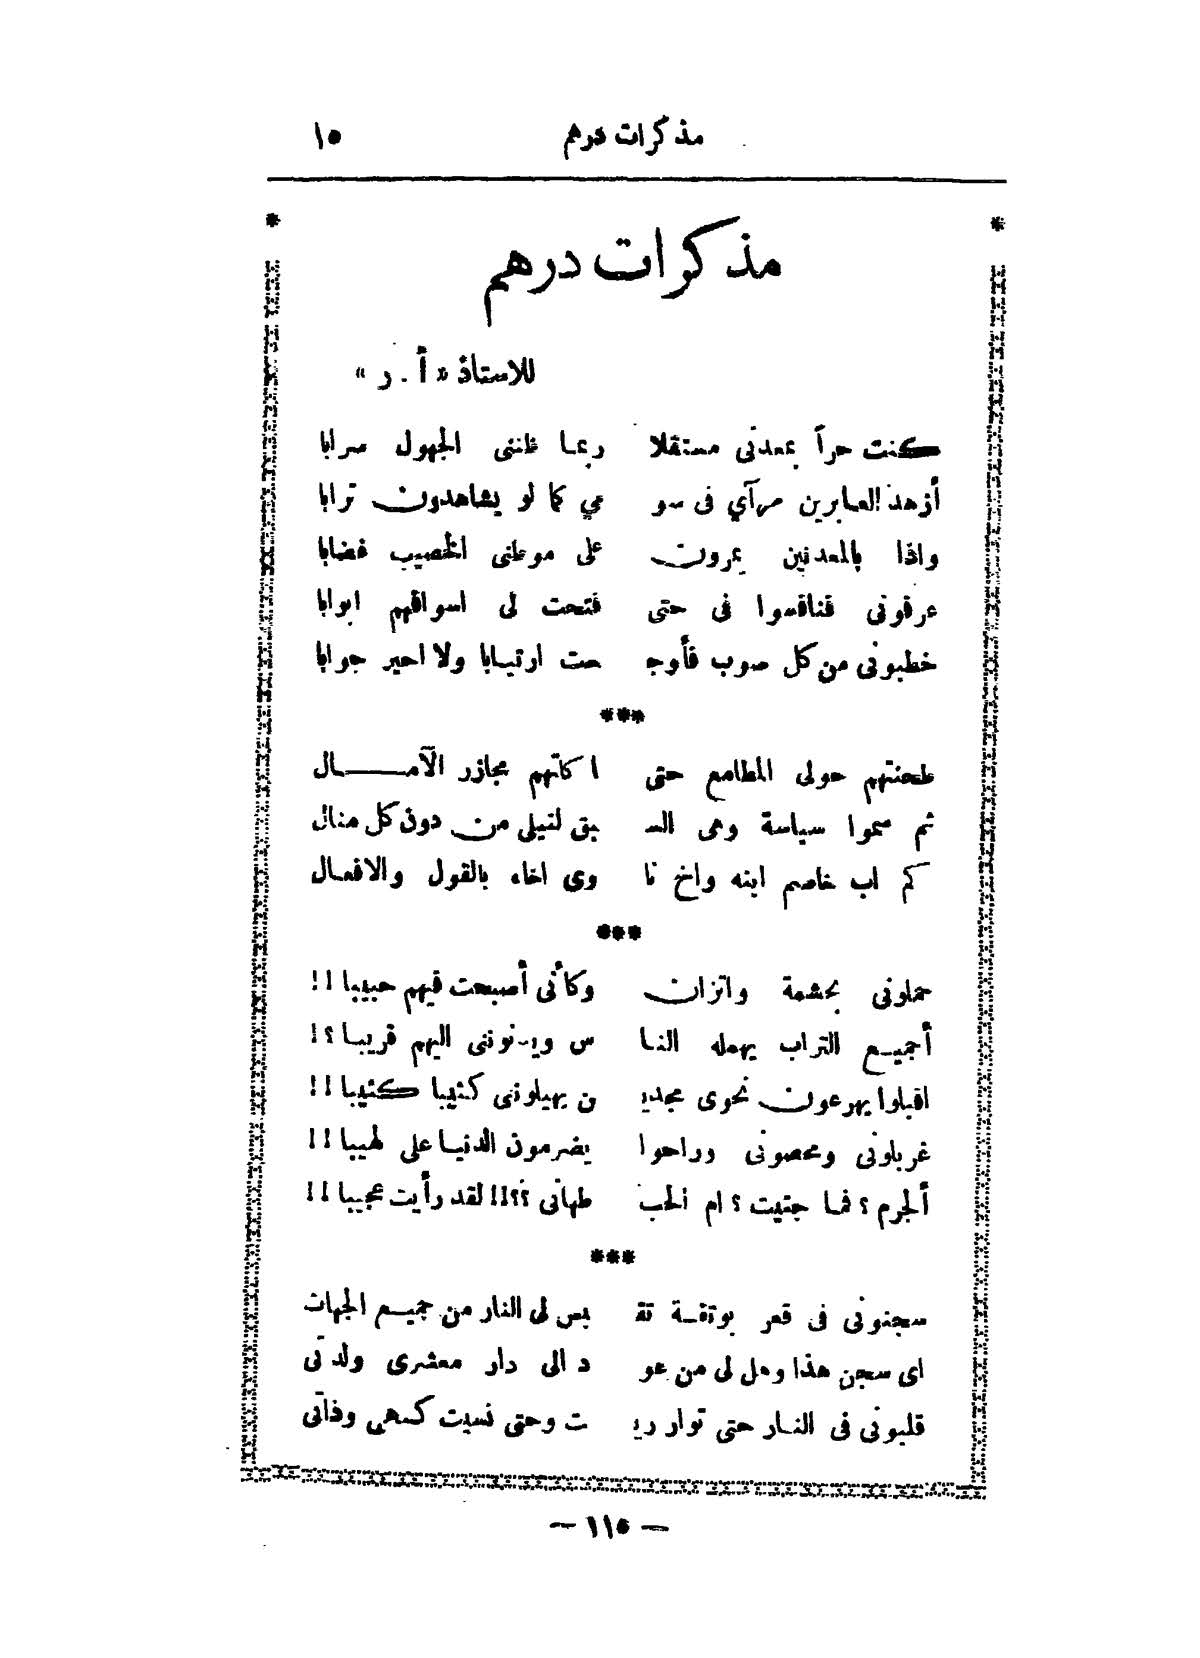 مذكرات درهم ١٥
مذكرات درهم
للاستاذ « أ . ر »
كنت حراً بمعدني مستقلا ربما ظنني الجهول سرابا
أزهد العابرين مرآي في سو مي كما لو يشاهدون ترابا
واذا بالمعدنين يمرون على موطني الخصيب فضابا
عرفوني فنافسوا في حتى فتحت لي اسواقهم ابوابا
خطبوني من كل صوب فأوجـ ـحت ارتيابا ولا احير جوابا
***
طحنتهم حولي المطامع حتى اكلتهم مجازر الآمـــال
ثم سموا سياسة وهي السـ ـبق لنيلي من دون كل منال
كم اب خاصم ابنه واخ نا وى اخاه بالقول والافعال
***
حملوني بحشمة واتزان وكأني أصبحت فيهم حبيبا !!
أجميع التراب يهمله النا س ويدنونني اليهم قريبا ؟!
اقبلوا يهرعون نحوي مجديـ ـن يهيلونني كئيبا كئيبا !!
غربلوني ومحصوني وراحوا يضرمون الدنيا علي لهيبا !!
ألجرم ؟ فما جنيت ؟ ام الحب طهاني ؟؟!! لقد رأيت عجيبا !!
***
سجنوني في قعر بوتقة تقـ ـبس لي النار من جميع الجهات
اي سجن هذا وهل لي من عو د الى دار معشري ولدتي
قلبوني في النار حتى تواريـ ـت وحتى نسيت كنهي وذاتي
— ١١٥ —